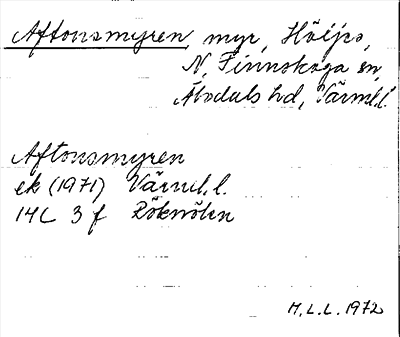 Aftonsmyren, myr, Höljes,
N. Finnskoga sn,
Älvdals hd, Värml. l.
Aftonsmyren
ek (1971) Värml. l.
14C 3 f Röknölen
M. L. L. 1972